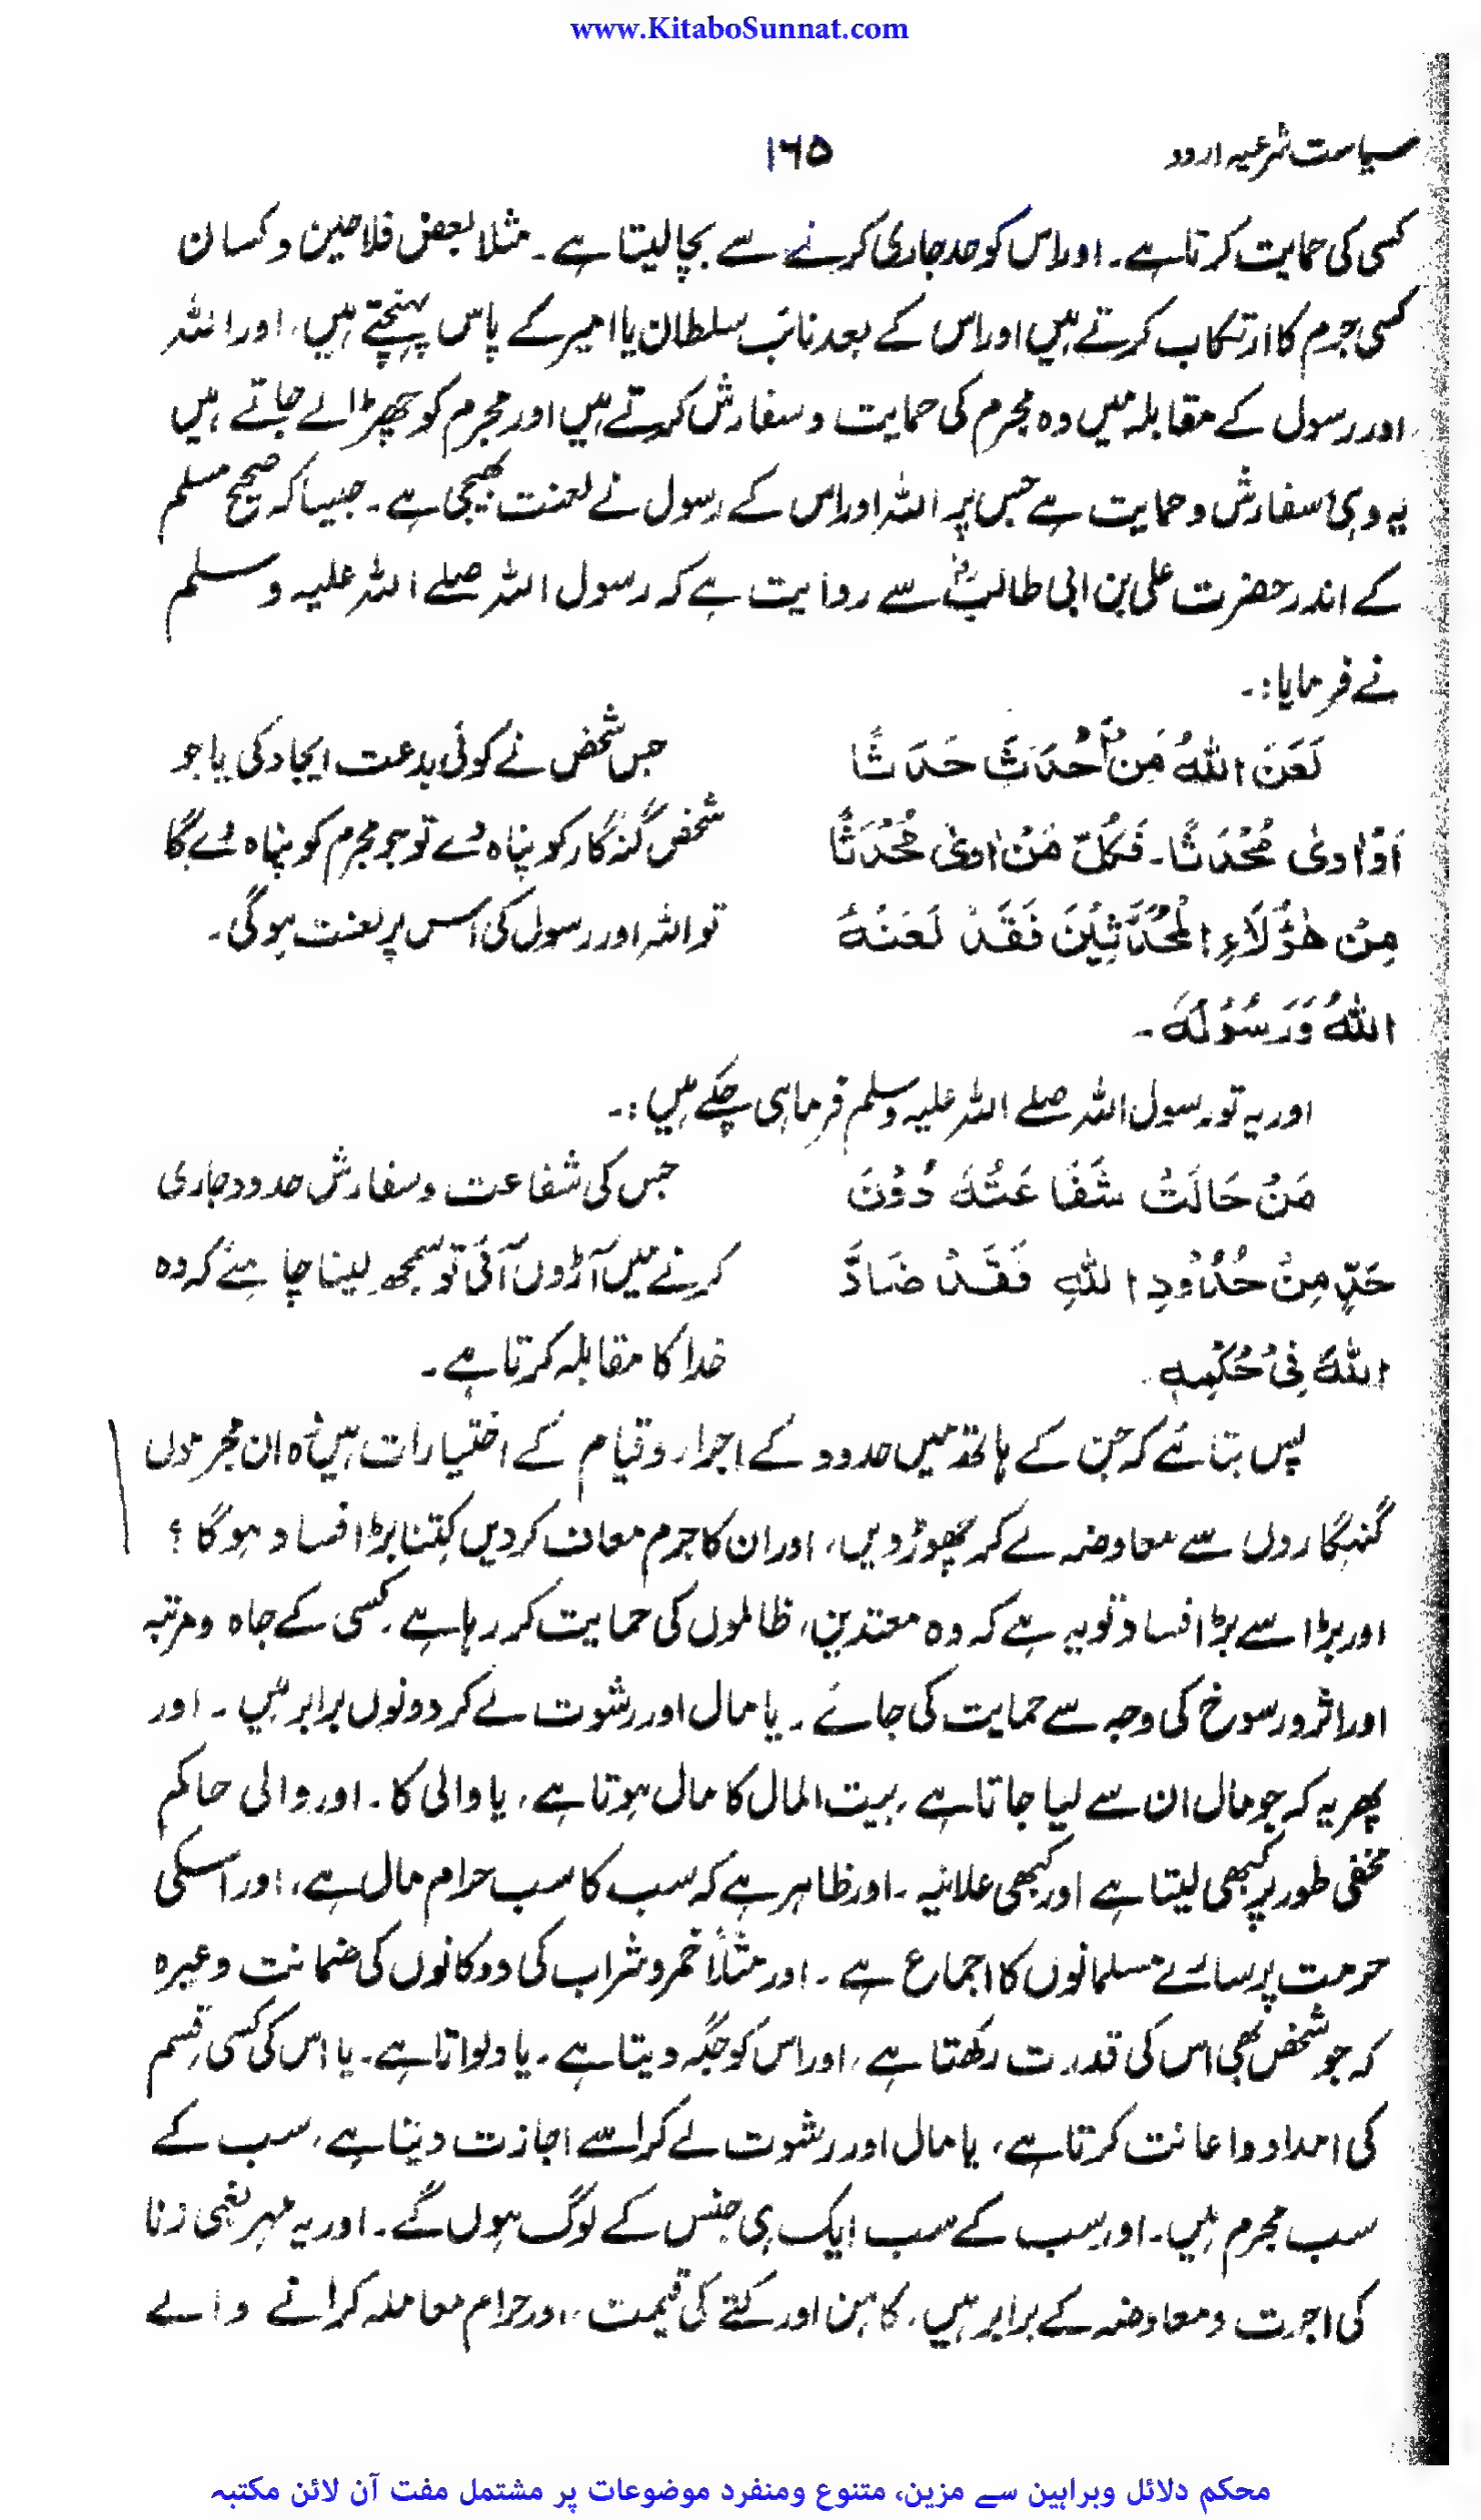 www.KitaboSunnat.com
سیاست شرعیہ اردو
۱۶۵
کسی کی حمایت کرتا ہے۔ اور اس کو حد جاری کرنے سے بچا لیتا ہے۔ مثلا بعض فلاحین و کسان
کسی جرم کا ارتکاب کرتے ہیں اور اس کے بعد نائب سلطان یا امیر کے پاس پہنچتے ہیں، اور اللہ
اور رسول کے مقابلہ میں وہ مجرم کی حمایت و سفارش کرتے ہیں اور مجرم کو چھڑا لے جاتے ہیں
یہ وہی سفارش و حمایت ہے جس پر اللہ اور اس کے رسول نے لعنت بھیجی ہے۔ جیسا کہ صحیح مسلم
کے اندر حضرت علی بن ابی طالبؓ سے روایت ہے کہ رسول اللہ صلے اللہ علیہ وسلم
نے فرمایا:۔
لَعَنَ اللهُ مَنْ اَحْدَثَ حَدَثًا
اَوْ اٰوىٰ مُحْدَثًا۔ فَكُلُّ مَنْ اٰوىٰ مُحْدَثًا
مِنْ هٰؤُلَاءِ الْمُحْدَثِيْنَ فَقَدْ لَعَنَهُ
اللهُ وَرَسُوْلُهُ۔
جس شخص نے کوئی بدعت ایجاد کی یا جو
شخص گنہگار کو پناہ دے تو جو مجرم کو پناہ دے گا
تو اللہ اور رسول کی اس پر لعنت ہوگی۔
اور یہ تو رسول اللہ صلے اللہ علیہ وسلم فرما ہی چکے ہیں:۔
مَنْ حَالَتْ شَفَاعَتُهُ دُوْنَ
حَدٍّ مِنْ حُدُوْدِ اللهِ فَقَدْ ضَادَّ
اللهَ فِىْ حُكْمِهٖ۔
جس کی شفاعت و سفارش حدود جاری
کرنے میں آڑوں آئی تو سمجھ لینا چاہئے کہ وہ
خدا کا مقابلہ کرتا ہے۔
پس بتائے کہ جن کے ہاتھ میں حدود کے اجرار و قیام کے اختیارات ہیں وہ ان مجرموں
گنہگاروں سے معاوضہ لے کر چھوڑ دیں، اور ان کا جرم معاف کر دیں کتنا بڑا فساد ہوگا ؟
اور بڑا سے بڑا فساد تو یہ ہے کہ وہ معتدین، ظالموں کی حمایت کر رہا ہے، کسی کے جاہ و مرتبہ
اور اثر و رسوخ کی وجہ سے حمایت کی جائے۔ یا مال اور رشوت لے کر دونوں برابر ہیں۔ اور
پھر یہ کہ جو مال ان سے لیا جاتا ہے، بیت المال کا مال ہوتا ہے، یا والی کا۔ اور والی حاکم
مخفی طور پر کبھی لیتا ہے اور کبھی علانیہ۔ اور ظاہر ہے کہ سب کا سب حرام مال ہے، اور اسکی
حرمت پر سارے مسلمانوں کا اجماع ہے۔ اور مثلاً خمر و شراب کی دوکانوں کی ضمانت وغیرہ
کہ جو شخص بھی اس کی قدرت رکھتا ہے، اور اس کو جگہ دیتا ہے۔ یا دلواتا ہے۔ یا اس کی کسی قسم
کی امداد و اعانت کرتا ہے، یا مال اور رشوت لے کر اسے اجازت دیتا ہے، سب کے
سب مجرم ہیں۔ اور سب کے سب ایک ہی جنس کے لوگ ہوں گے۔ اور یہ مہر بغی زنا
کی اجرت و معاوضہ کے برابر ہیں، کاہن اور کتے کی قیمت، اور حرام معاملہ کرانے والے
محکم دلائل وبراہین سے مزین، متنوع ومنفرد موضوعات پر مشتمل مفت آن لائن مکتبہ